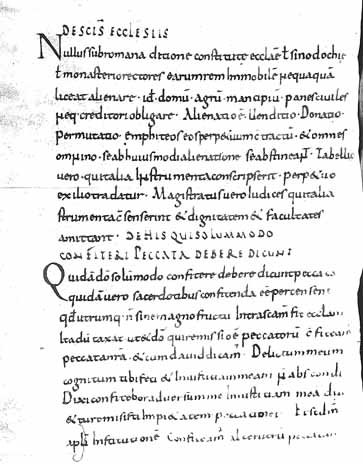 DE SCIS ECCLESIIS
Nullus sub romana ditione constitute eccłae t sinodochie
t monasterio rectores earum rem Immobile nequaquā
liceat alienare · id domū · agrū · mancipiū · panes civiles
neq · creditori obligare · Alienatio ē Uenditio · Donatio
Permutatio · emphiteoseos perpetuum c tractū · & omnes
omnino · se ab huiusmodi alienatione se abstineant · Tabellio
vero · qui talia Instrumenta conscripserit · perpetuo
exilio tradatur · Magistratus vero Iudices qui talia
strumenta c senserint & dignitatem & facultates
amittant · DE HIS QUI SOLUMMODO
CONFITERI PECCATA DEBERE DICUNT
Quidā dō solūmodo confitere debere dicunt peccata
quidā vero sacerdotibus confitenda eē percensent
qd utrumq · n sine magno fructu Intra scam fit eccłam
Ita dū taxat ut & dō qui remissio ē peccatorū
peccata nra · & cum david dicam · Delictum meum
cognitum tibi feci & Iniustitiam meam n abscondi
Dixi confitebor adversum me Iniustitiam mea dno
& tu remisisti Impietatem peccati mei
apli Institutionē